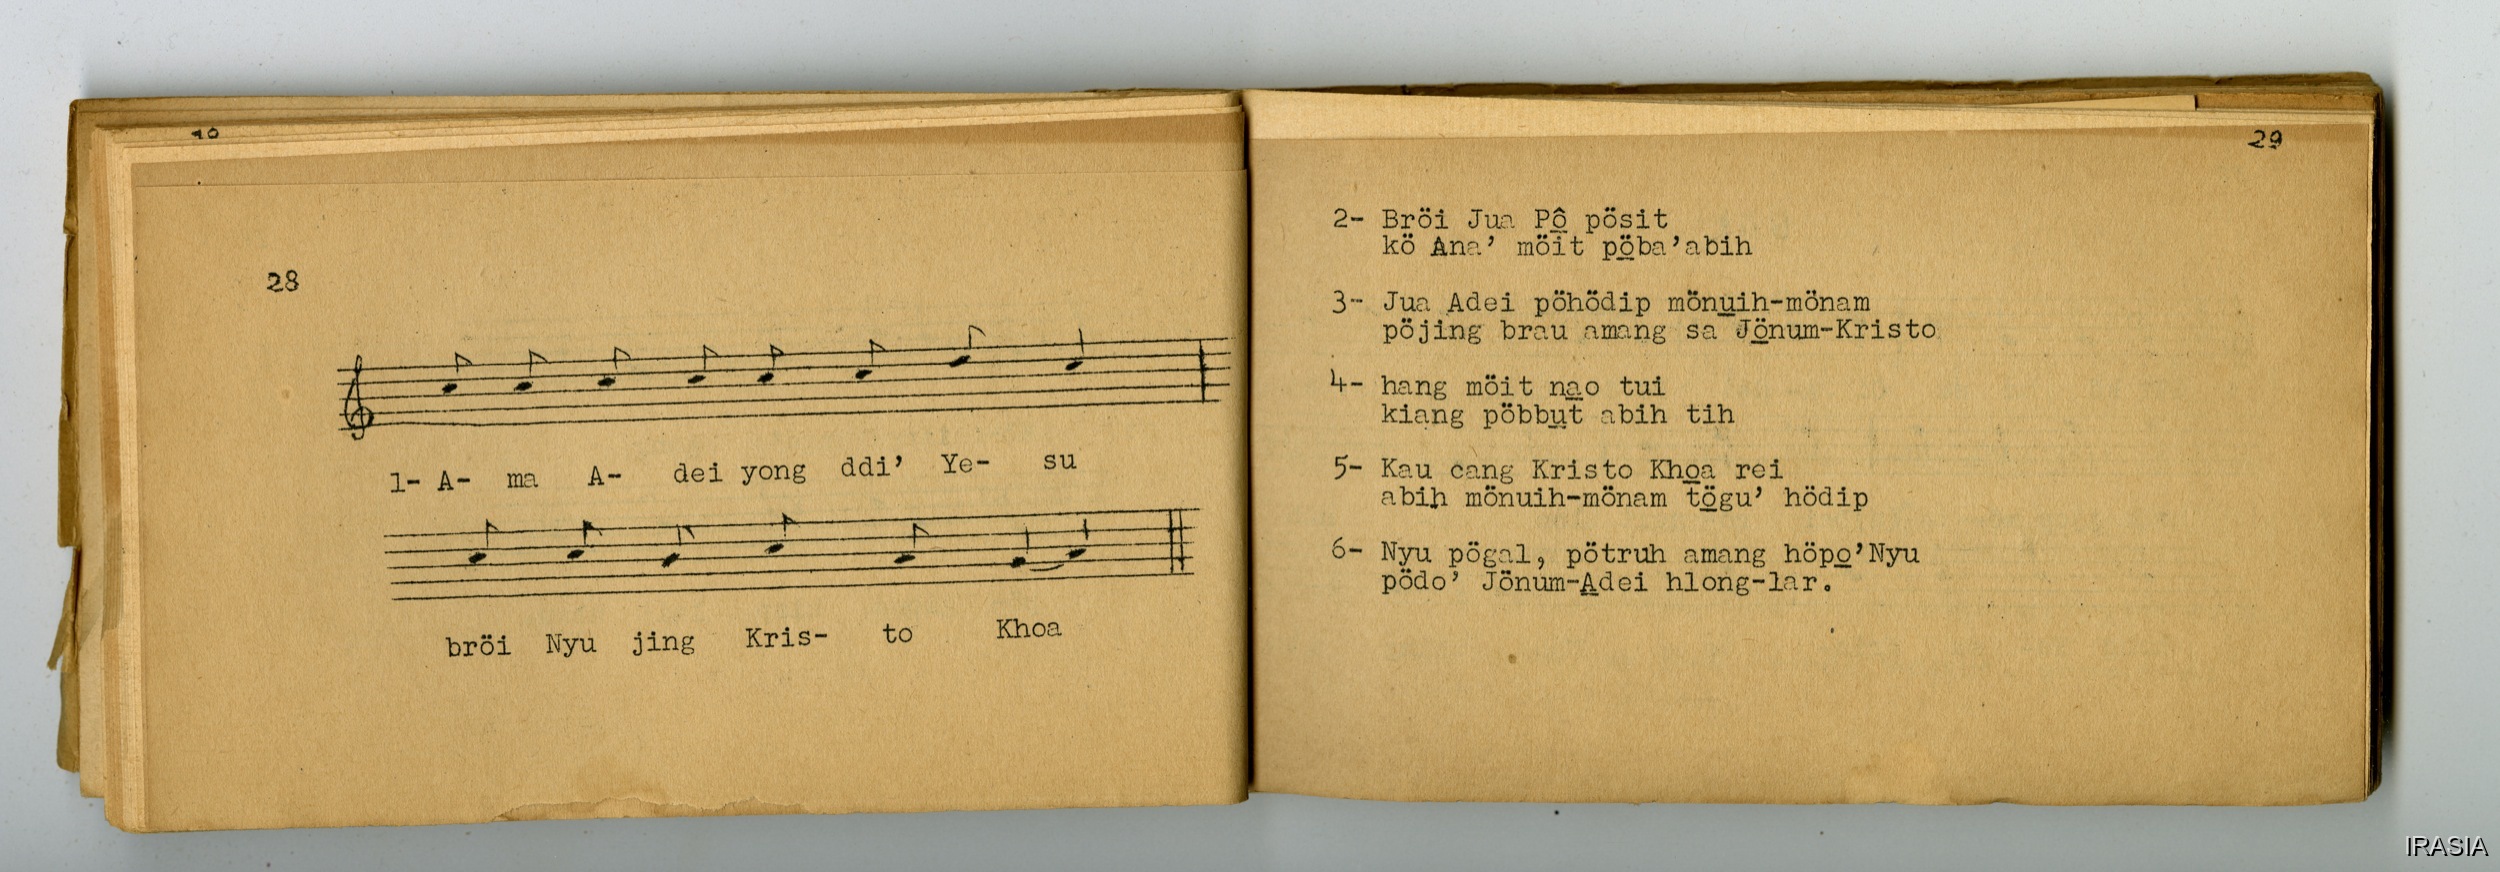 28
1- A- ma A- dei yong ddi’ Ye- su
bröi Nyu jing Kris- to Khoa
29
2- Bröi Jua Pô̱ pösit
kö Ana’ möit pö̱ba’abih
3- Jua Adei pöhödip mönu̱ih-mönam
pöjing brau amang sa Jö̱num-Kristo
4- hang möit na̱o tui
kiang pöbbu̱t abih tih
5- Kau cang Kristo Kho̱a rei
abih mönuih-mönam tö̱gu’ hödip
6- Nyu pögal, pötruh amang höpo̱’Nyu
pödo’ Jönum-A̱dei hlong-lar.
IRASIA